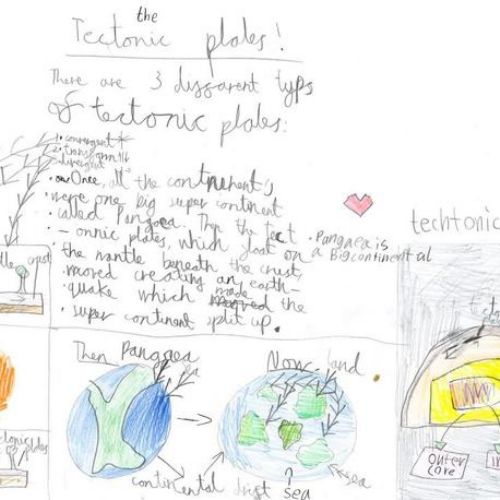 the
Tectonic plates!
There are 3 dissarent typs
of tectonic plates:
• convergent
• transform
• divergent
• Once, all the continent's
• were one big super continent
• called Pangaea. Then the tect
• - onic plates, which float on
• the mantle beneath the crust,
• moved creating an earth-
• quake which made the
• super continent split up.
• Pangaea is
a Big continental
techtonic
crust
Then Pangaea
Now land
sea
continental drift
sea
sea
plates
outer
core